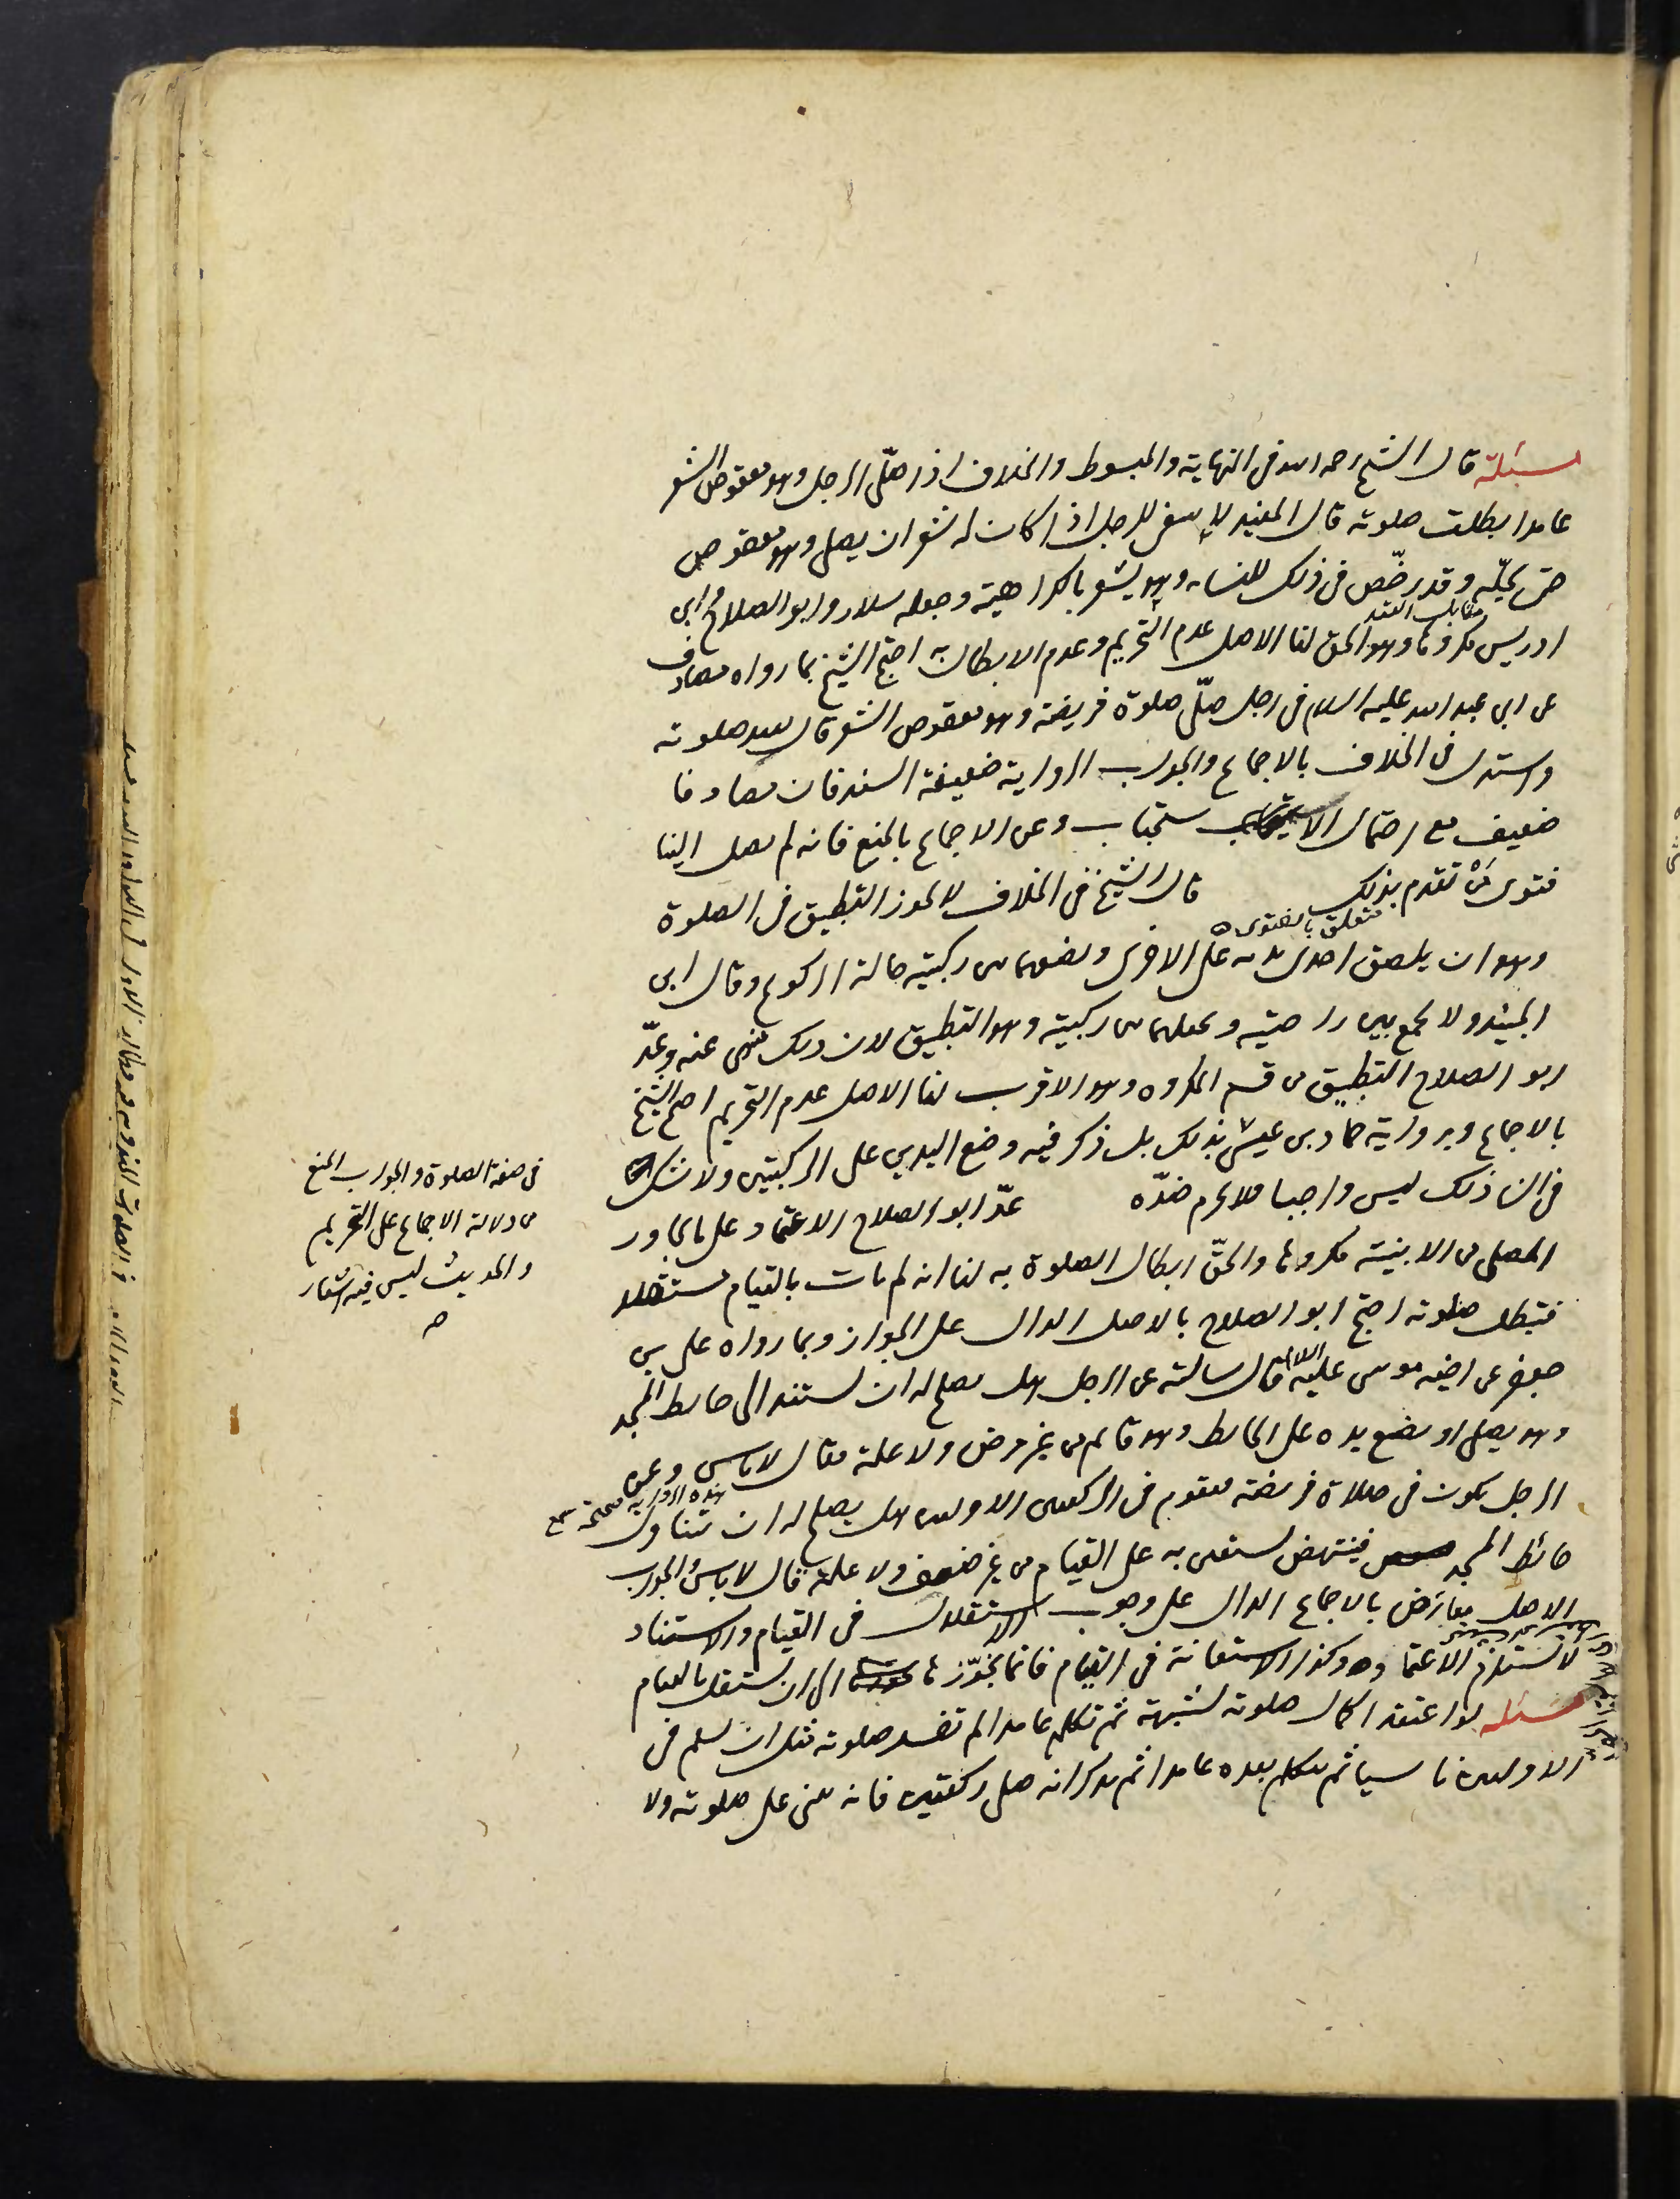 مسئلة قال الشيخ رحمه الله فى النهاية والمبسوط والخلاف اذا صلّى الرجل وهو معقوص الشعر
عامدا بطلت صلوته قال المفيد لا ينبغى للرجل اذا كان له شعر ان يصلى وهو معقوص
حتى يحلّه وقد رخّص فى ذلك للنساء وهو يشعر بالكراهية وجعله سلار وابو الصلاح وابن
ادريس مكروها وهو الحق لنا الاصل عدم التحريم وعدم الابطال به احتج الشيخ بما رواه مصادف
عن ابى عبد الله عليه السلام فى رجل صلّى صلوة فريضة وهو معقوص الشعر قال يعيد صلوته
واستدل فى الخلاف بالاجماع والجواب الرواية ضعيفة السند فان مصادفا
ضعيف مع احتمال الاستحباب وعن الاجماع بالمنع فانه لم يصل الينا
فتوى من تقدم بذلك قال الشيخ فى الخلاف لا يجوز التطبيق فى الصلوة
متعلق بالفتوى
وهو ان يلصق احدى يديه على الاخرى ويضعهما بين ركبتيه حالة الركوع وقال ابن
الجنيد ولا يجمع بين راحتيه ويجعلهما بين ركبتيه وهو التطبيق لان ذلك منهى عنه وعدّ
ابو الصلاح التطبيق من قسم المكروه وهو الاقرب لنا الاصل عدم التحريم احتج الشيخ
بالاجماع وبرواية حماد بن عيسى بذلك بل ذكر فيه وضع اليدين على الركبتين ولا شك
فى ان ذلك ليس واجبا فلا يحرم ضدّه عدّ ابو الصلاح الاعتماد على ما يجاور
المصلى من الابنية مكروها والحقّ ابطال الصلوة به لنا انه لم يات بالقيام مستقلا
فتبطل صلوته احتج ابو الصلاح بالاصل الدال على الجواز وبما رواه على بن
جعفر عن اخيه موسى عليه السلام قال سالته عن الرجل هل يصلح له ان يستند الى حائط المسجد
وهو يصلى او يضع يده على الحائط وهو قائم من غير مرض ولا علة فقال لا باس وعن
الرجل يكون فى صلاة فريضة فيقوم فى الركعتين الاوليين هل يصلح له ان يتناول
حائط المسجد فينتهض يستعين به على القيام من غير ضعف ولا علة قال لا باس والجواب
الاصل معارض بالاجماع الدال على وجوب الاستقلال فى القيام والاستناد
لا يستلزم الاعتماد وكذا الاستعانة فى القيام فانما يجوّزها الى ان يستقل بالقيام
مسئلة لو اعتقد اكمال صلوته لشبهة ثم تكلم عامدا لم تفسد صلوته مثل ان يسلم فى
الاوليين ناسيا ثم يتكلم بعده عامدا ثم يذكر انه صلى ركعتين فانه يبنى على صلوته ولا
فى صفة الصلوة والجواب المنع
من دلالة الاجماع على التحريم
والحديث ليس فيه اشعار